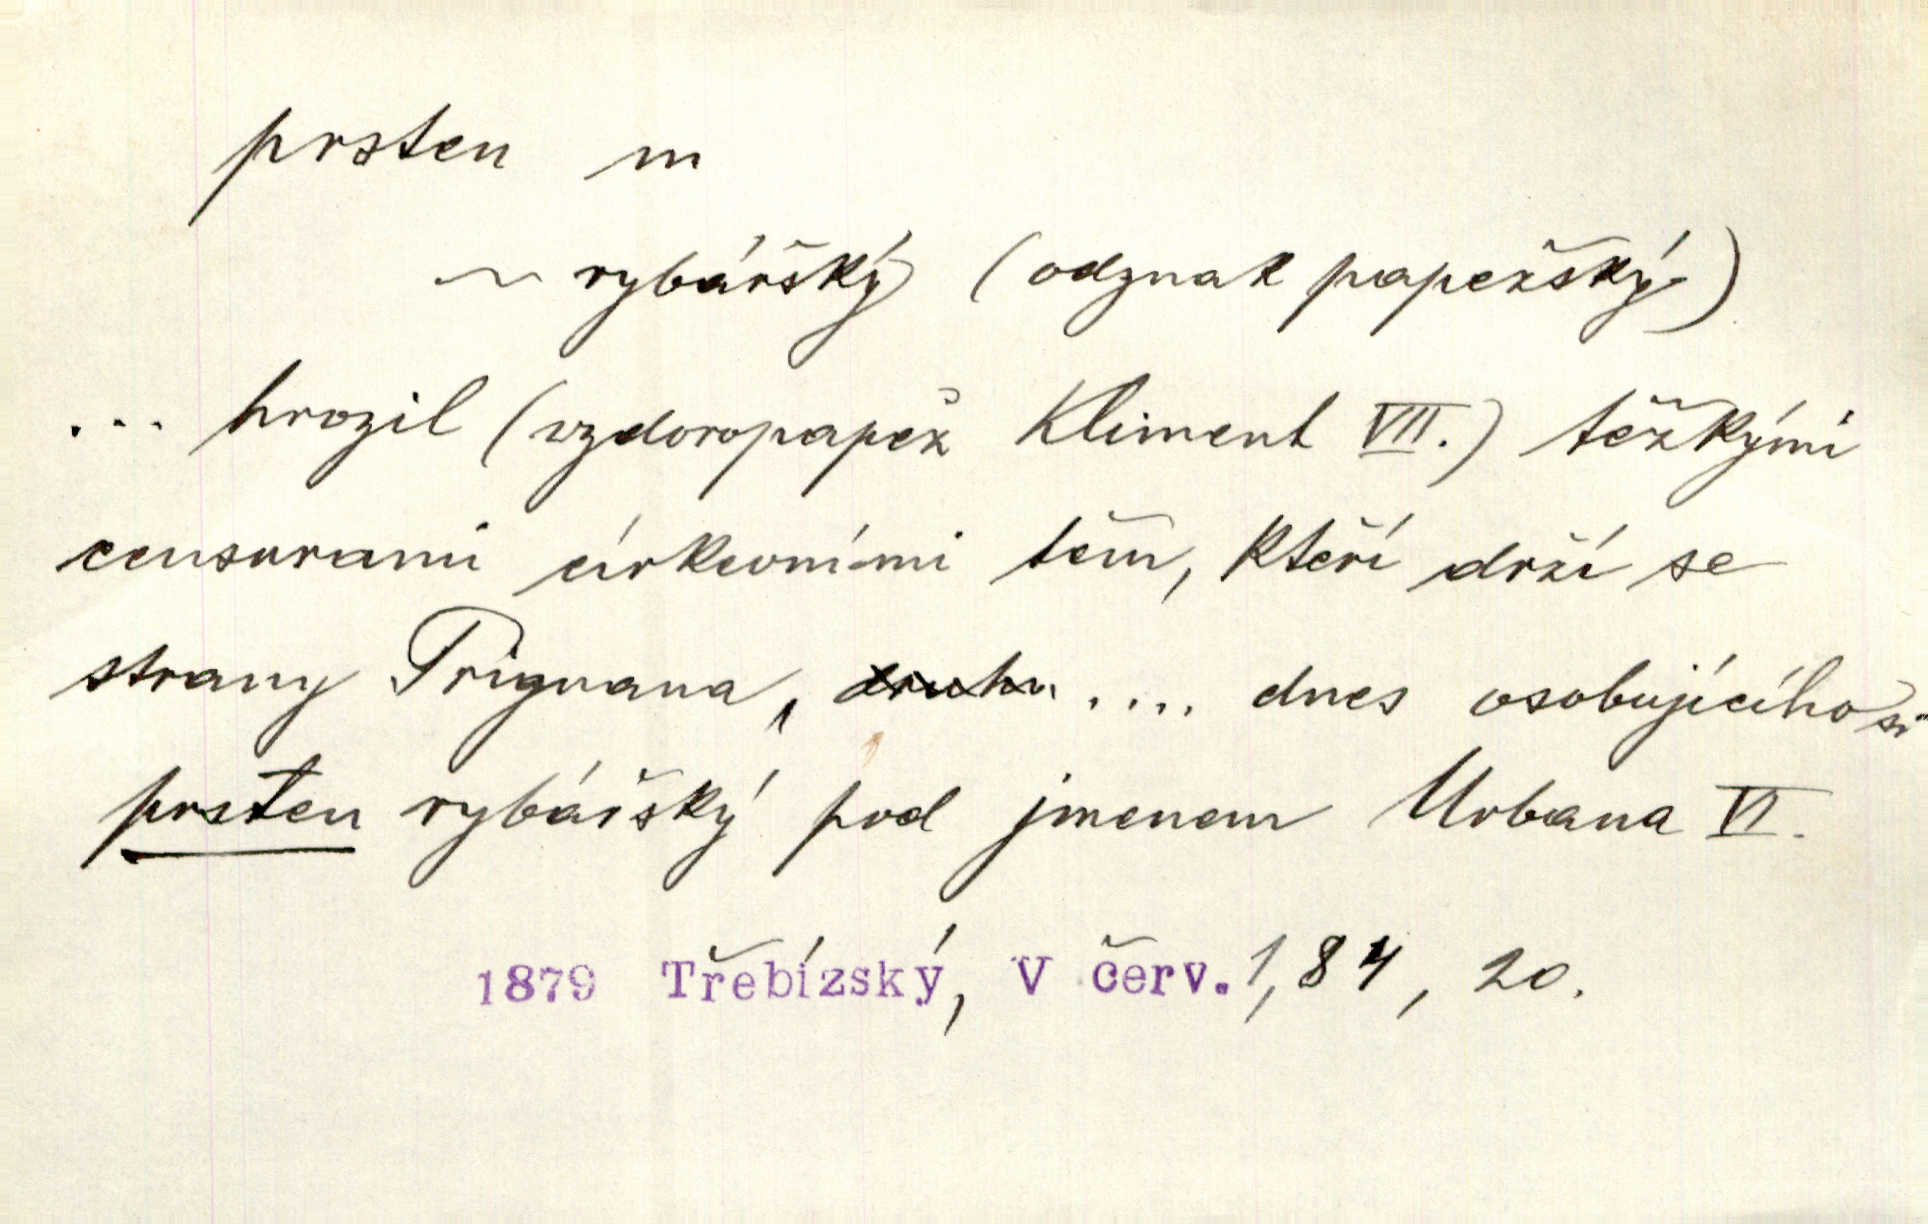 prsten m
~ rybářský (odznak papežský)
... hrozil (vzdoropapež Kliment VII.) těžkými
censurami církevními těm, kteří drží se
strany Prignana, .... dnes osobujícího si
prsten rybářský pod jmenem Urbana VI.
1879 Třebízský, V červ. 1, 84, 20.